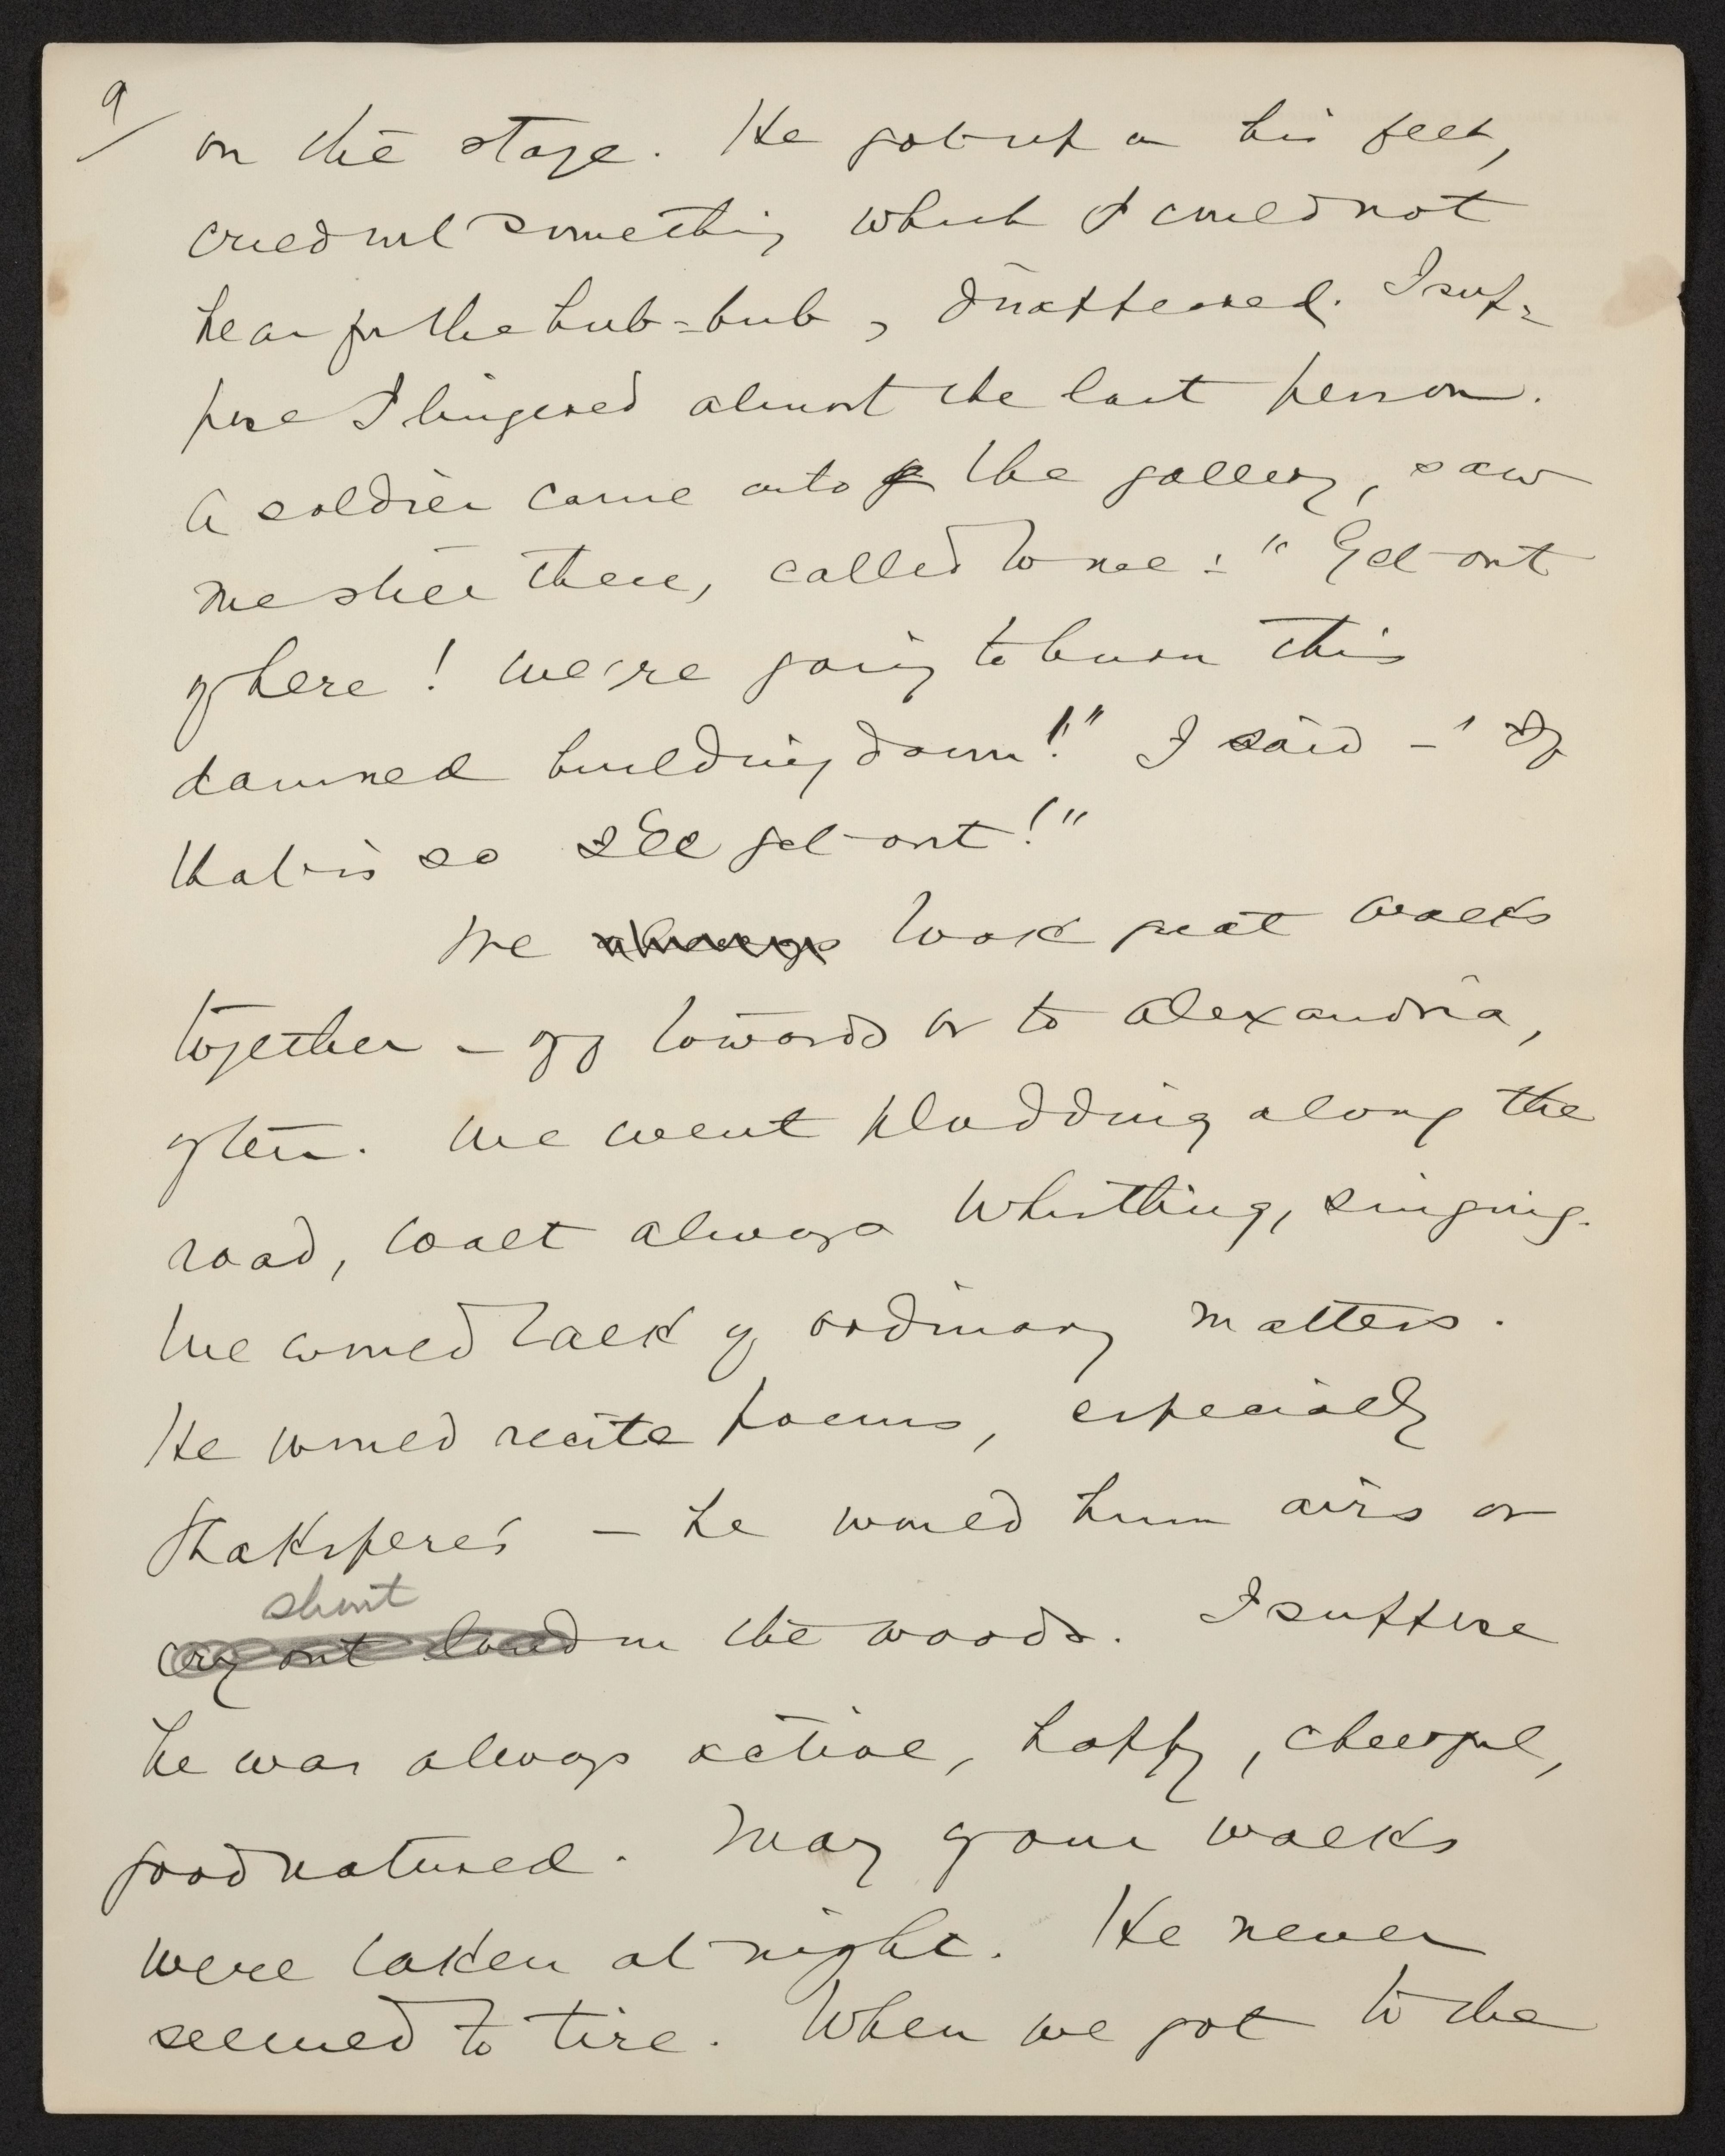 9/
on the stage. He got up on his feet,
cried out something which I could not
hear for the hub-bub, disappeared. I sup-
pose I lingered almost the last person.
A soldier came into the gallery, saw
me still there, called to me: "Get out
of here! We're going to burn this
damned building down!" I said – "If
that is so I'll get out!"
We always took great walks
together – off towards or to Alexandria,
often. We went plodding along the
road, Walt always whistling, singing.
We would talk of ordinary matters.
He would recite poems, especially
Shakspere's – he would hum airs or
shout
cry out loud in the woods. I suppose
he was always active, happy, cheerful,
good natured. Many of our walks
were taken at night. He never
seemed to tire. When we got to the